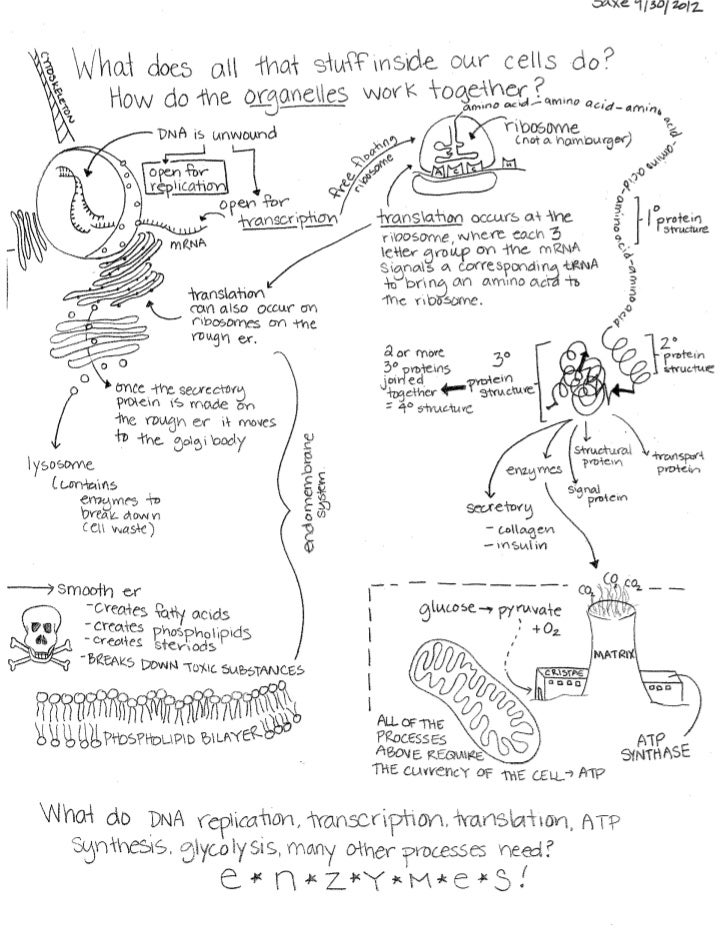 Saxe 9/30/2012
What does all that stuff inside our cells do?
How do the organelles work together?
CYTOSKELETON
DNA is unwound
open for
replication
open for
transcription
mRNA
free floating
ribosome
amino acid-amino acid-amino acid-amino acid-amino acid-amino acid
ribosome
(not a hamburger)
translation occurs at the
ribosome, where each 3
letter group on the mRNA
signals a corresponding tRNA
to bring an amino acid to
the ribosome.
1° protein
structure
translation
can also occur on
ribosomes on the
rough er.
2°
protein
structure
3°
protein
structure
2 or more
3° proteins
joined
together
= 4° structure
once the secrectory
protein is made on
the rough er it moves
to the golgi body
lysosome
(contains
enzymes to
break down
cell waste)
endomembrane
system
structural
protein
transport
protein
enzymes
signal
protein
secretory
- collagen
- insulin
smooth er
-creates fatty acids
-creates phospholipids
-creates steriods
-BREAKS DOWN TOXIC SUBSTANCES
PHOSPHOLIPID BILAYER
CO2 CO2 CO2
glucose → pyruvate
+O2
MATRIX
CRISTAE
ATP
SYNTHASE
ALL OF THE
PROCESSES
ABOVE REQUIRE
THE CURRENCY OF THE CELL → ATP
What do DNA replication, transcription, translation, ATP
synthesis, glycolysis, many other processes need?
e*n*z*Y*M*e*s!